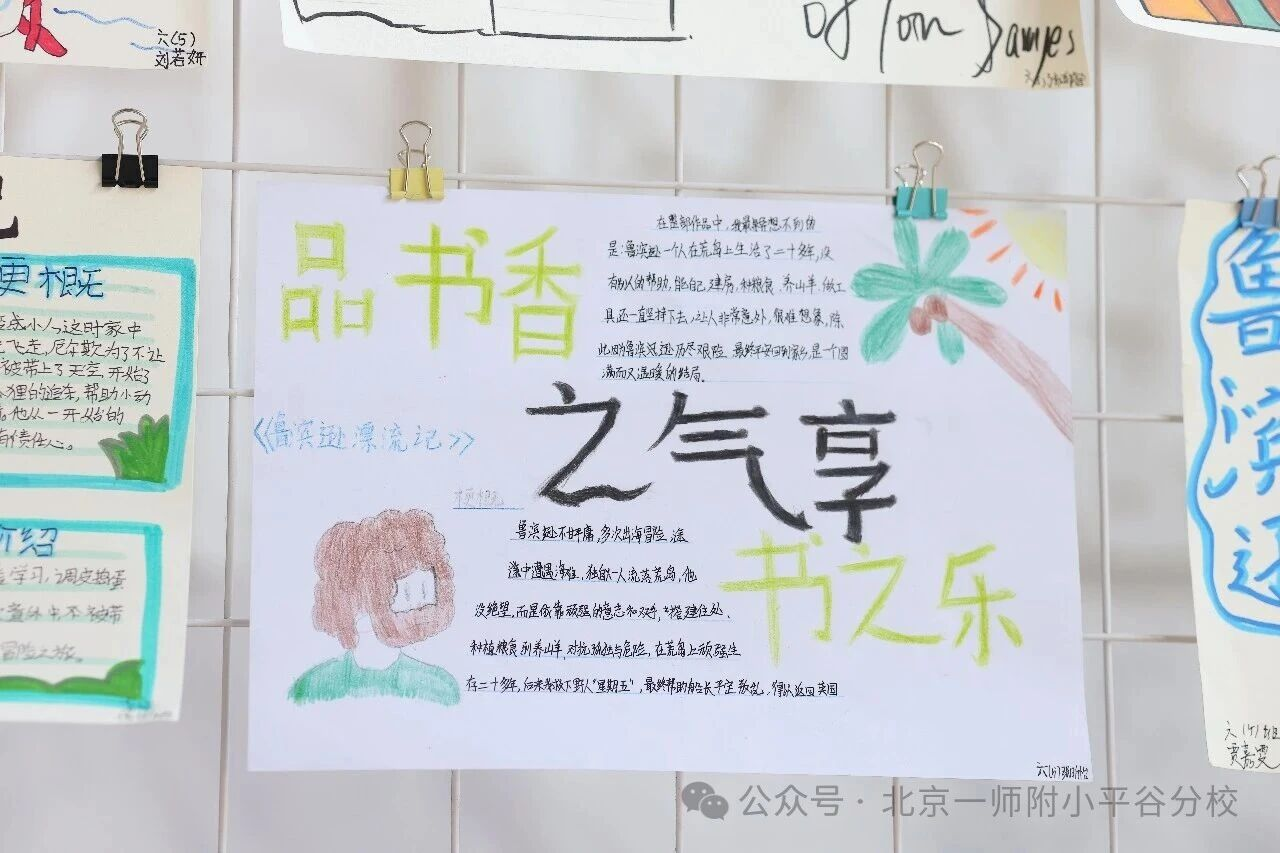 六(5)
刘若妍
of Tom Sawyes
更概
变成小人,这时家中
飞走,尼尔斯为了不让
被带上了天空,开始了
狐狸的追车,帮助小动
他从一开始的
有责任心。
介绍
学习,调皮捣蛋
意外中不被带
冒险之旅。
品书香
在整部作品中,我最意想不到的
是鲁滨逊一个人在荒岛上生活了二十多年,没
有别人的帮助,能自己建房,种粮食、养山羊、做工
具还一直坚持下去,让人非常意外,很难想象,除
此之外鲁滨逊历尽艰险 最终平安回到家乡,是一个圆
满而又温暖的结局。
之气享
《鲁滨逊漂流记》
梗概
鲁滨逊不甘平庸,多次出海冒险,
途中遭遇海难,独自一人流落荒岛,他
没绝望,而是依靠顽强的意志和双手,搭建住处、
种植粮食 驯养山羊,对抗孤独与危险,在荒岛上顽强生
存二十多年,后来救下野人“星期五”,最终帮助船长平定叛乱,得以返回英国
书之乐
六(5)
鲁滨逊
六(5)
公众号·北京一师附小平谷分校